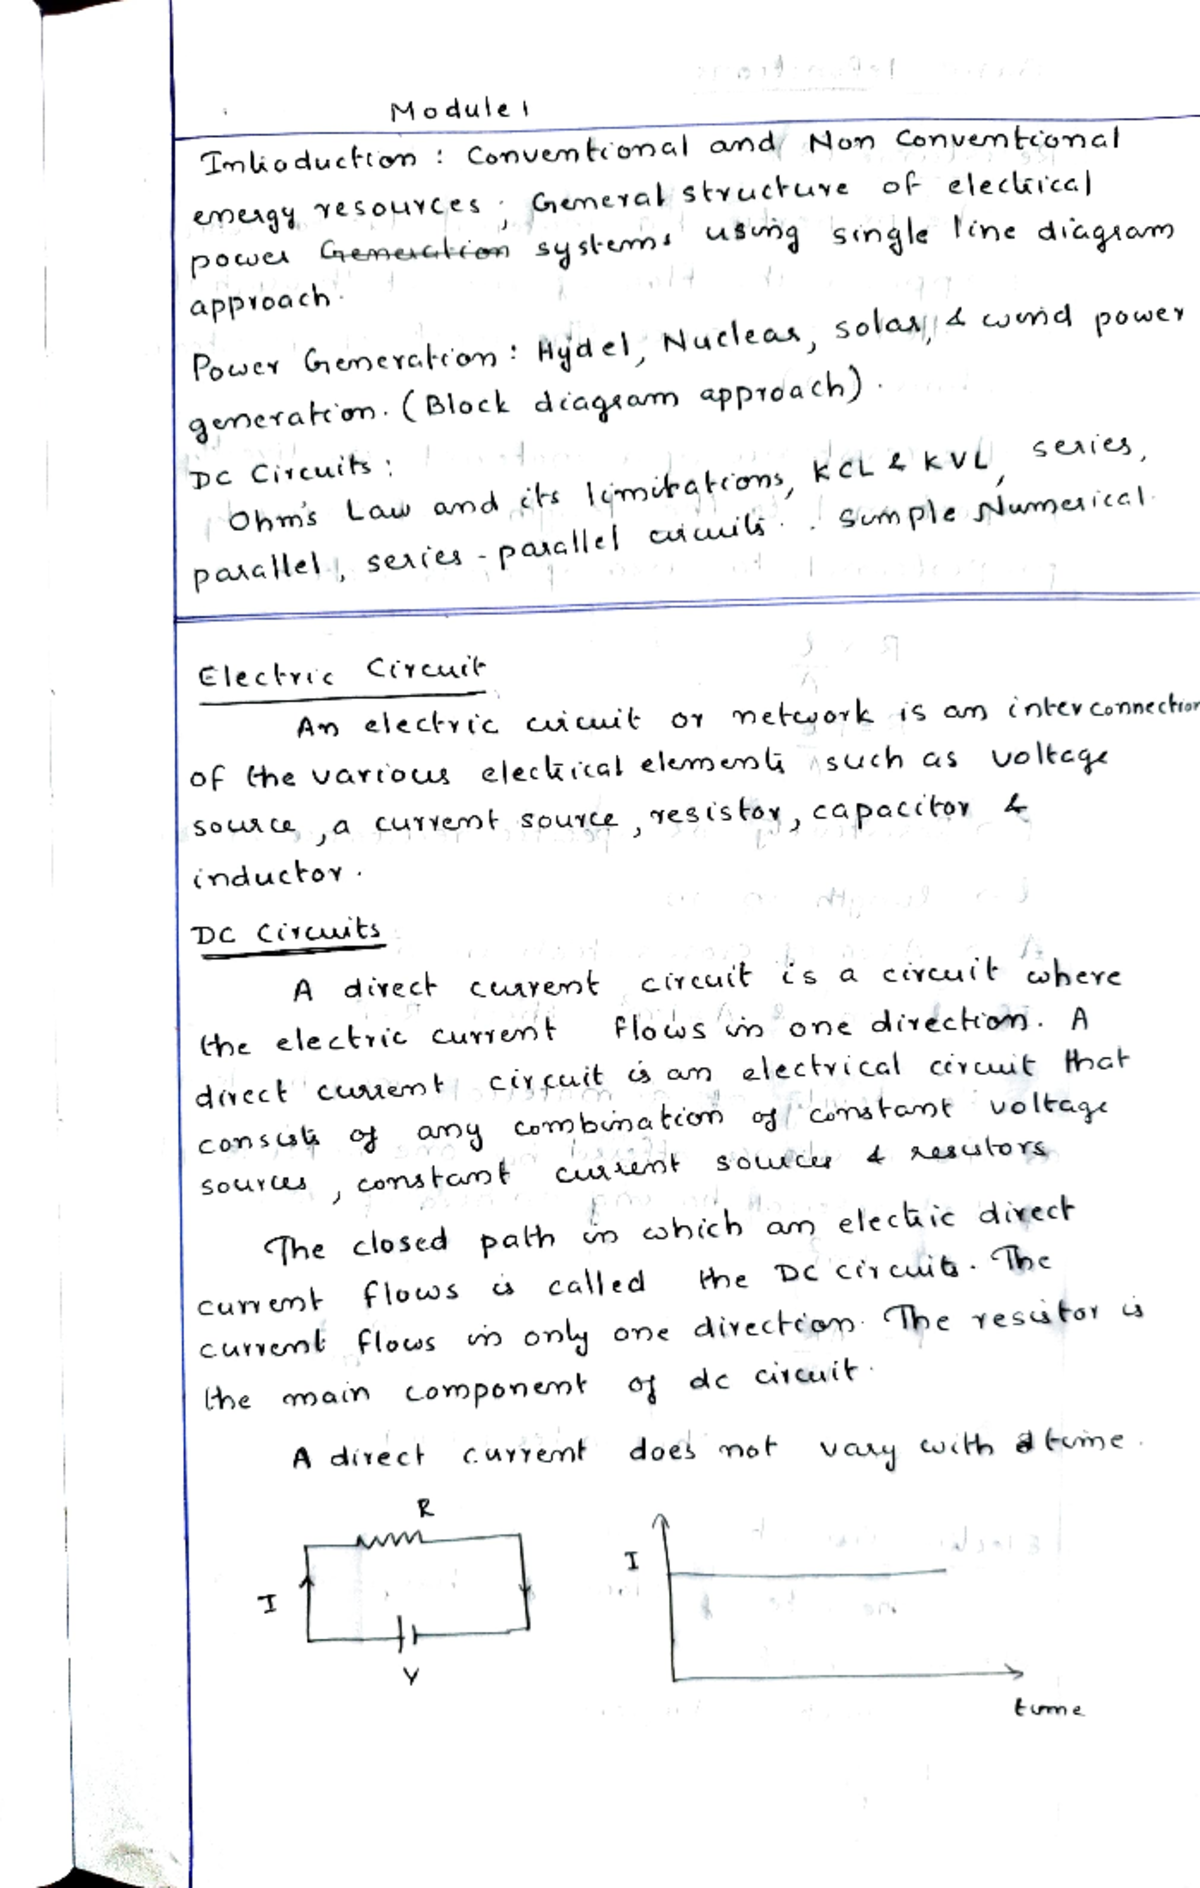 Module 1
Introduction : Conventional and Non Conventional
energy resources ; General structure of electrical
power Generation systems using single line diagram
approach.
Power Generation : Hydel, Nuclear, solar, & wind power
generation. (Block diagram approach).
DC Circuits :
Ohm's Law and its limitations, KCL & KVL, series,
parallel, series - parallel circuits. Simple Numerical.
Electric Circuit
An electric circuit or network is an interconnection
of the various electrical elements such as voltage
source, a current source, resistor, capacitor &
inductor.
DC Circuits
A direct current circuit is a circuit where
the electric current flows in one direction. A
direct current circuit is an electrical circuit that
consists of any combination of constant voltage
sources, constant current sources & resistors
The closed path in which an electric direct
current flows is called the DC circuits. The
current flows in only one direction. The resistor is
the main component of dc circuit.
A direct current does not vary with time.
R
I
I
V
time